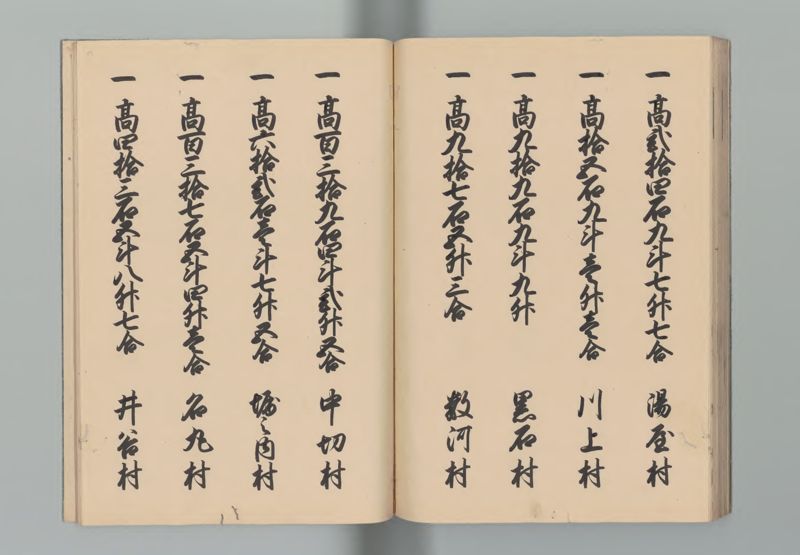 一 高弐拾四石九斗七升七合 湯屋村
一 高拾五石九斗壱升壱合 川上村
一 高九拾九石九斗九升 黒石村
一 高九拾七石五升三合 数河村
一 高百三拾九石四斗弐升五合 中切村
一 高六拾弐石壱斗七升五合 堀之内村
一 高百三拾七石五斗四升壱合 名丸村
一 高四拾三石五斗八升七合 井谷村